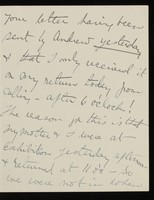 your letter having been
sent by Andrew yesterday
& that I only received it
on my return today from
calling - after 6 o'clock!
The reason for this is that
my mother & I were at
exhibition yesterday afternoon
& returned at 11.00 - so
we were not in when